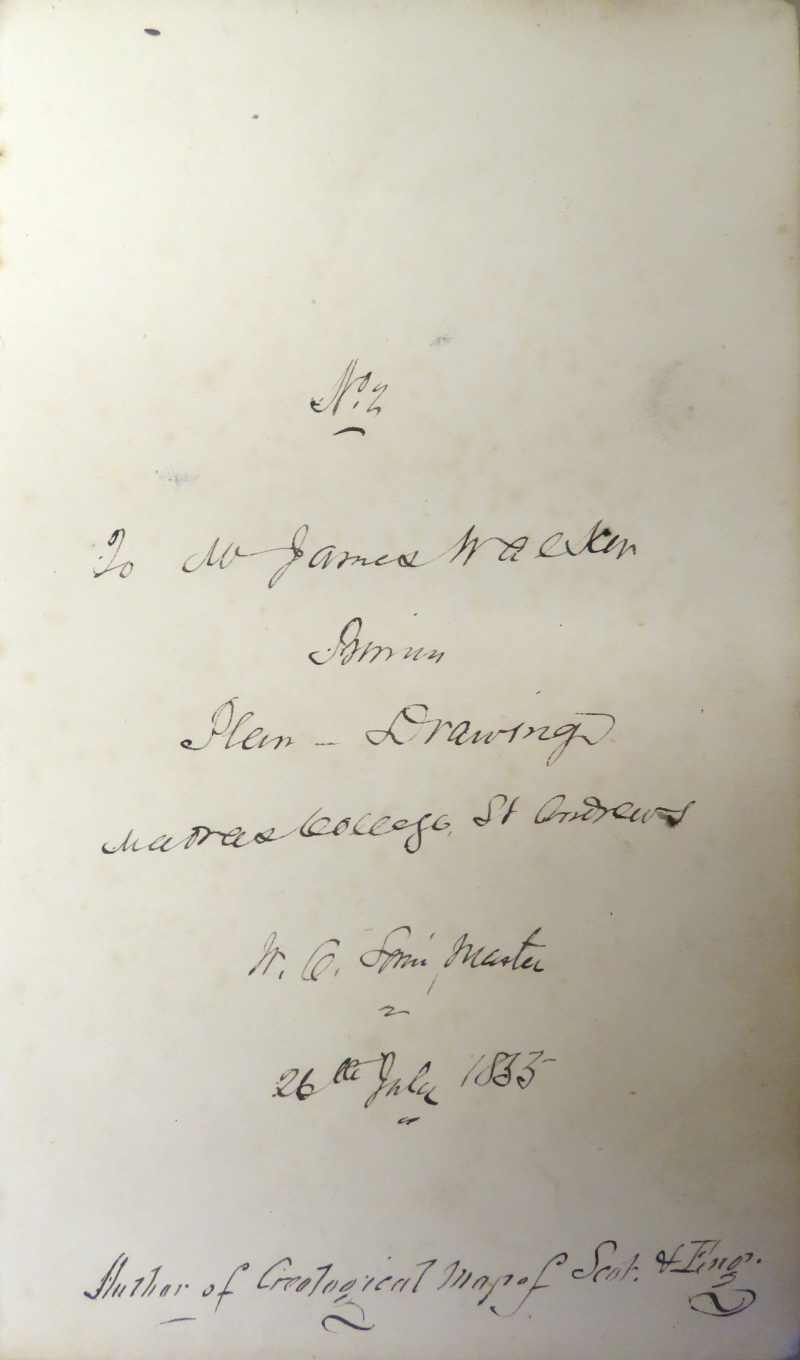 No. 2
To Mr James Walker
Plan - Drawing
Madras College, St Andrews
W. C. Master
26th July 1835
Author of Geological Map of Scot. & Eng.